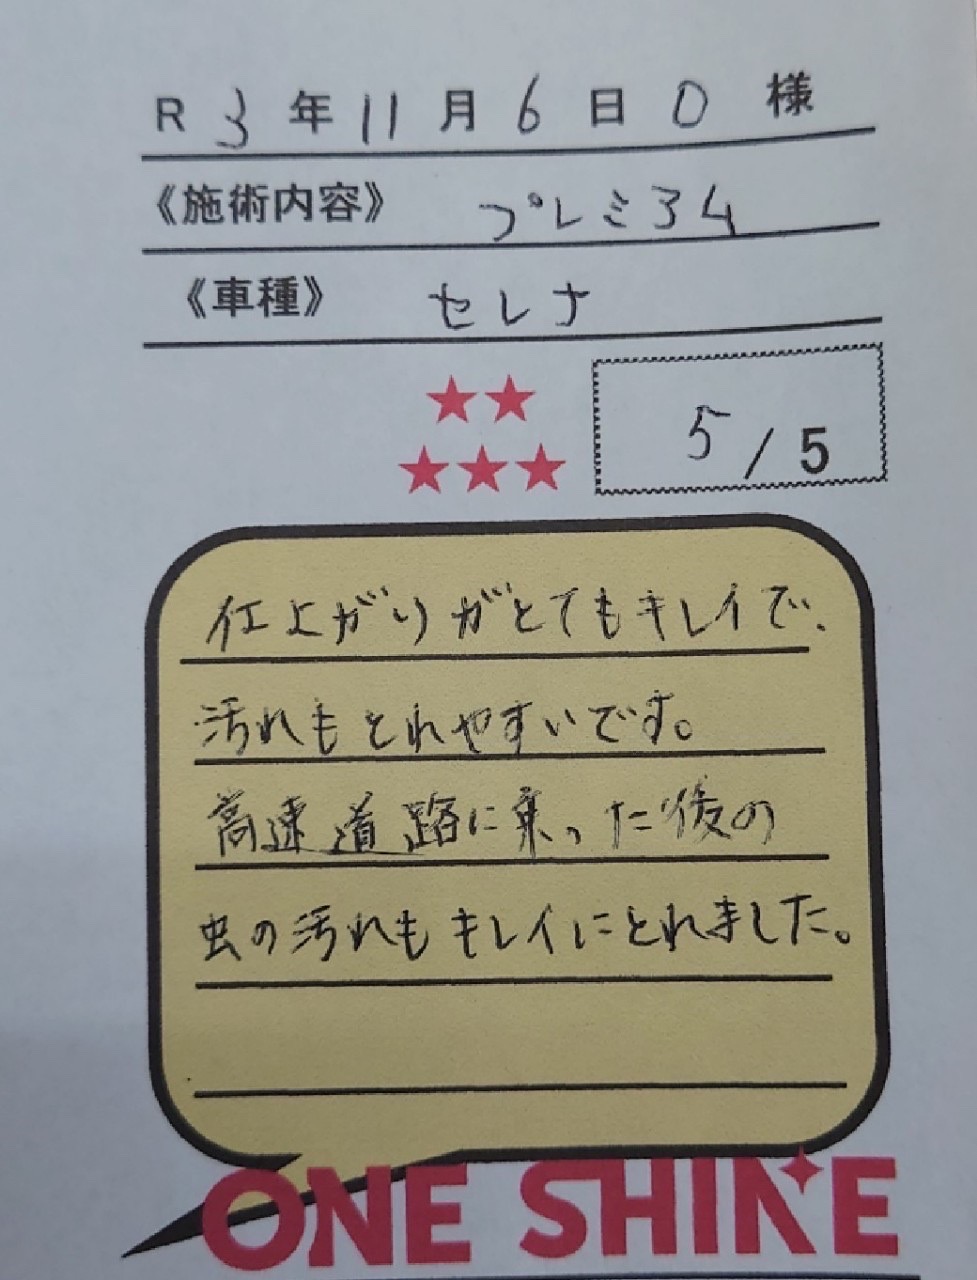 R 3 年 11 月 6 日 O 様
《施術内容》 プレミアム
《車種》 セレナ
★★
★★★
5 / 5
仕上がりがとてもキレイで、
汚れもとれやすいです。
高速道路に乗った後の
虫の汚れもキレイにとれました。
ONE SHINE